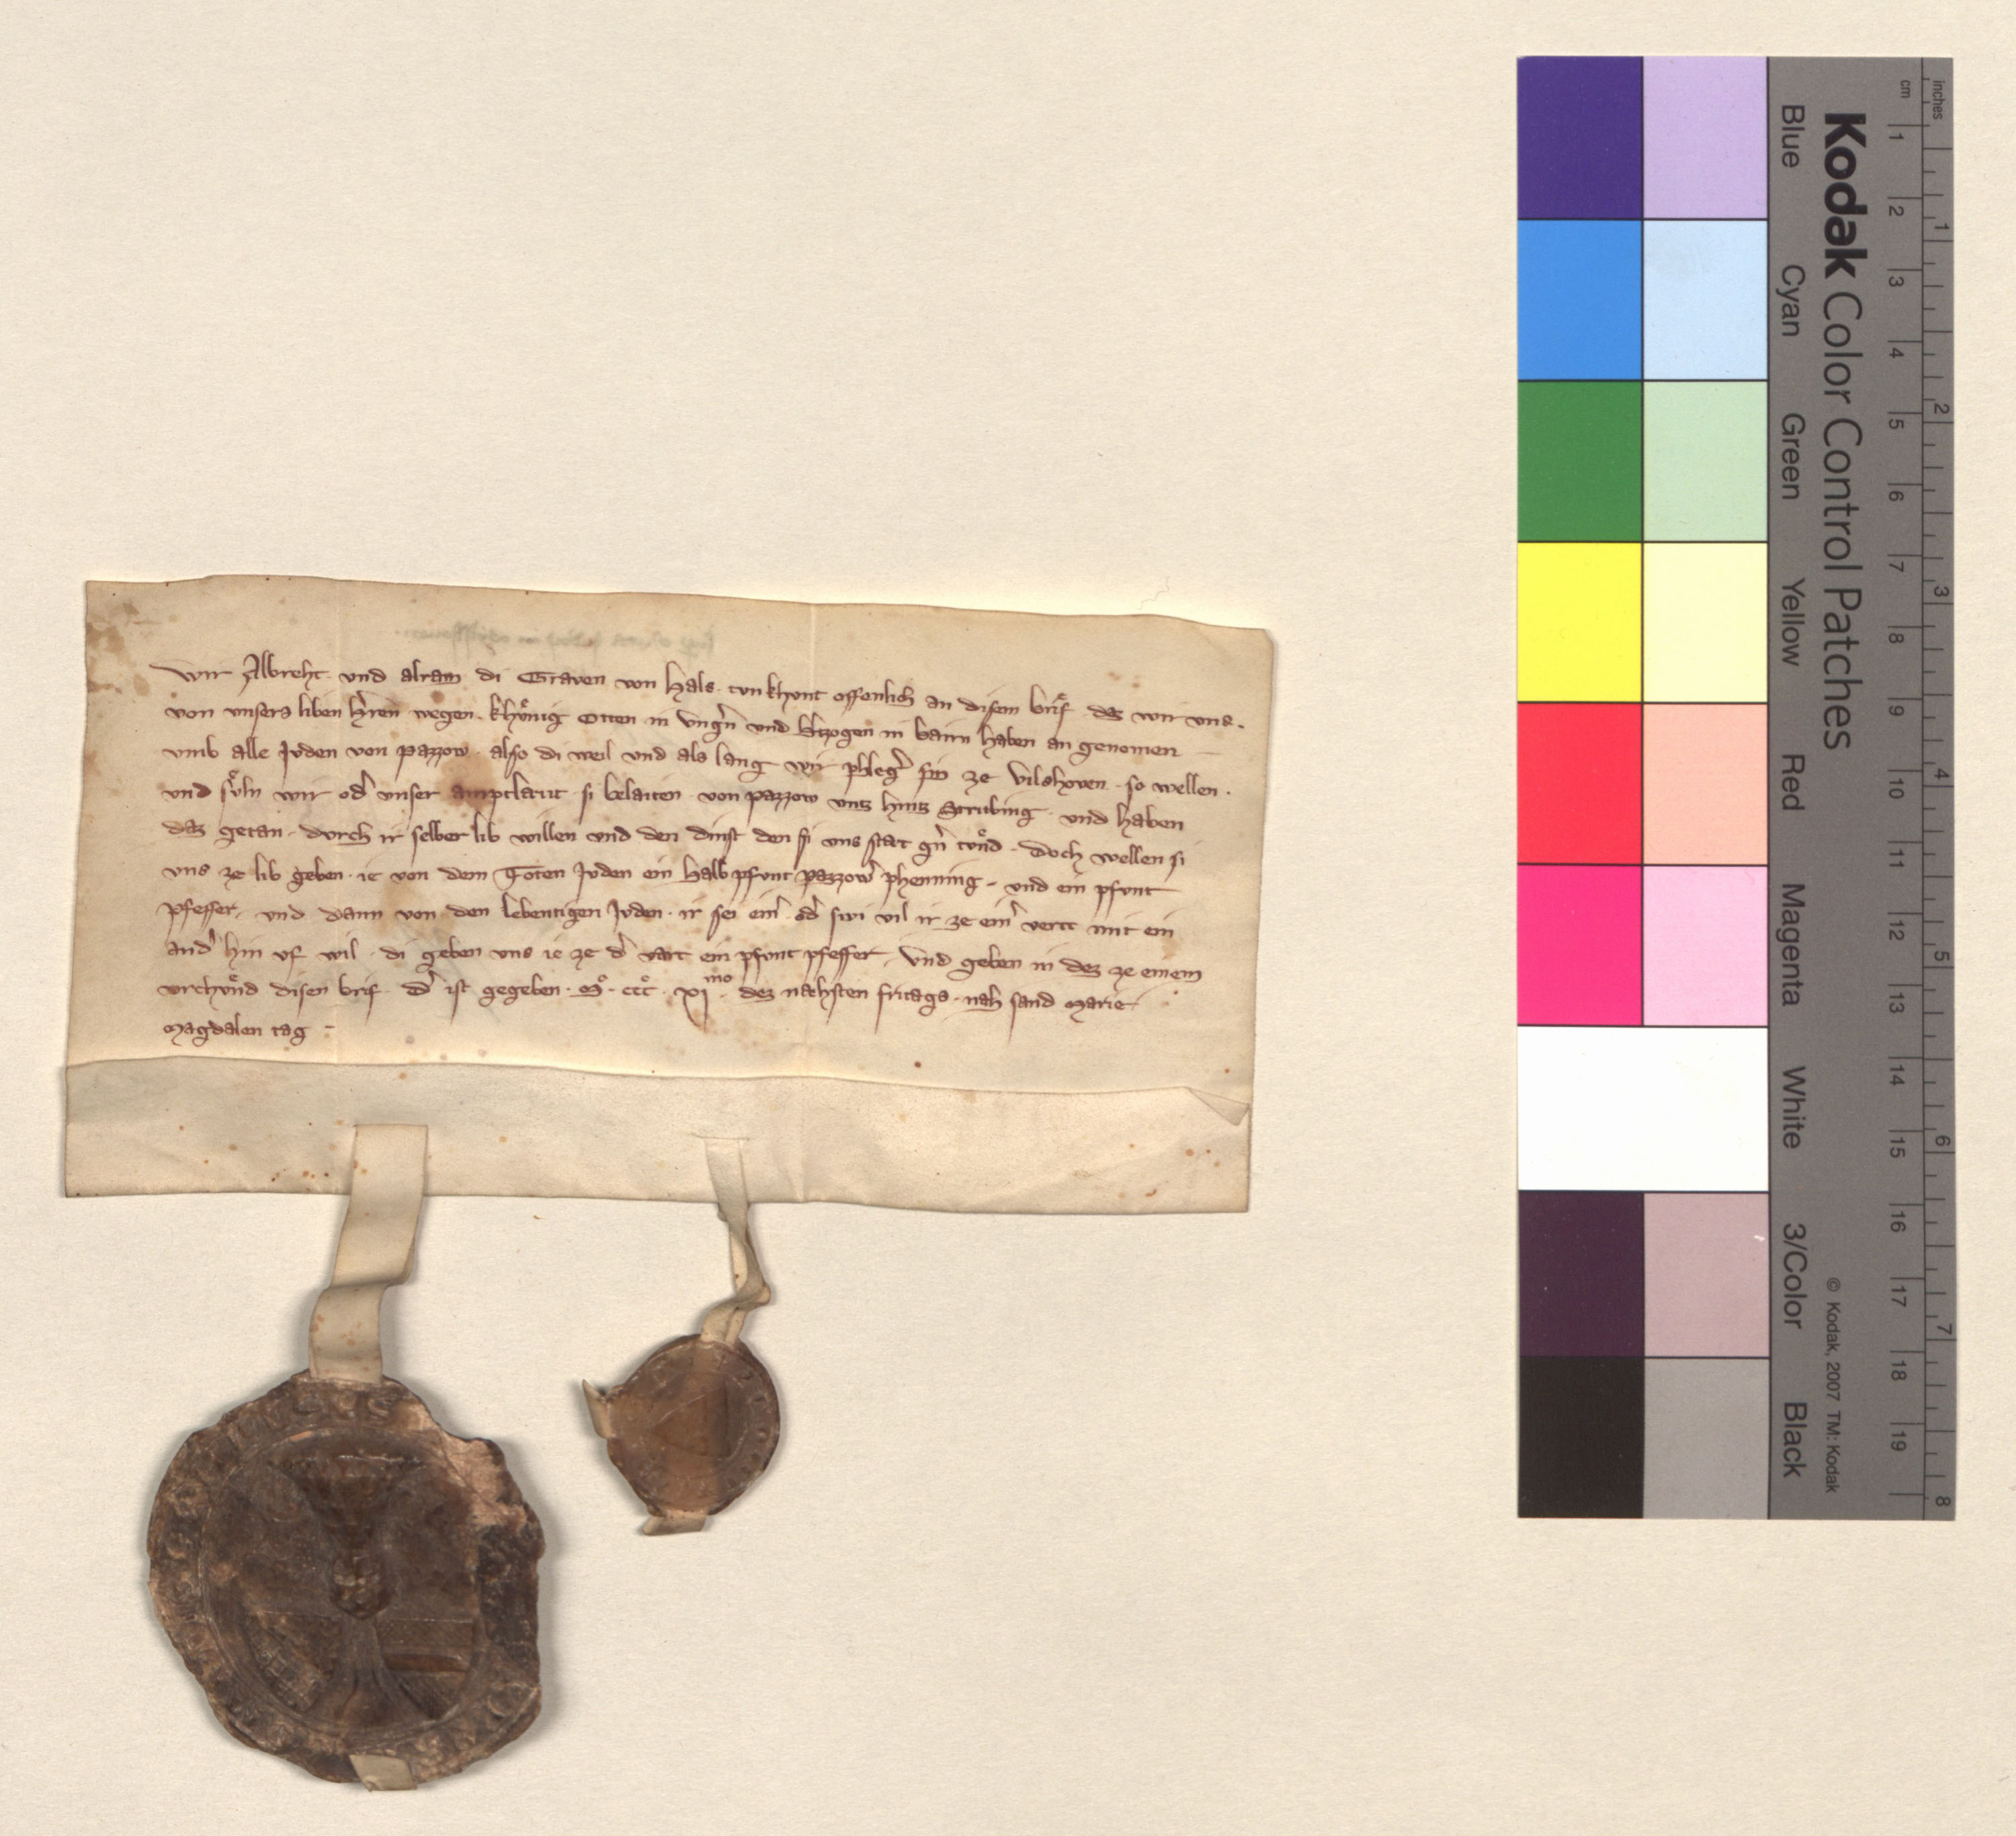 Wir Albreht und alram di Graven von Hals tun khunt offenlich an disem brif daz wir uns
von unsers liben h'ren wegen khuͦnig Otten in Ung'n und h'tzogen in bairn haben an genomen
umb alle Juden von pazzow also di weil und als lang wir phleg' sein ze Vilshoven so wellen
und suͤln wir od' unser amptlaut si belaiten von pazzow untz hintz Strubing und haben
daz getan durch ir selber lib willen und den dinst den si uns stat g'n tuͦnd doch wellen si
uns ze lib geben ie von dem Toten Juden ein halb pfunt pazzow' phenning und ein pfunt
pfeffer und dann von den lebentigen Juden ir sei ein' od' swi vil ir ze ein' vertt mit ein
and' hin uf wil di geben uns ie ze d' vart ein pfunt pfeffer und geben in dez ze einem
urchuͤnd disen brif d' ist gegeben M° ccc° xj mo dez nahsten fritags nah sand Marie
Magdalen tag
Kodak Color Control Patches
Blue
Cyan
Green
Yellow
Red
Magenta
White
3/Color
Black
© Kodak, 2007 TM: Kodak
inches
cm
1 2 3 4 5 6 7 8 9 10 11 12 13 14 15 16 17 18 19
1 2 3 4 5 6 7 8